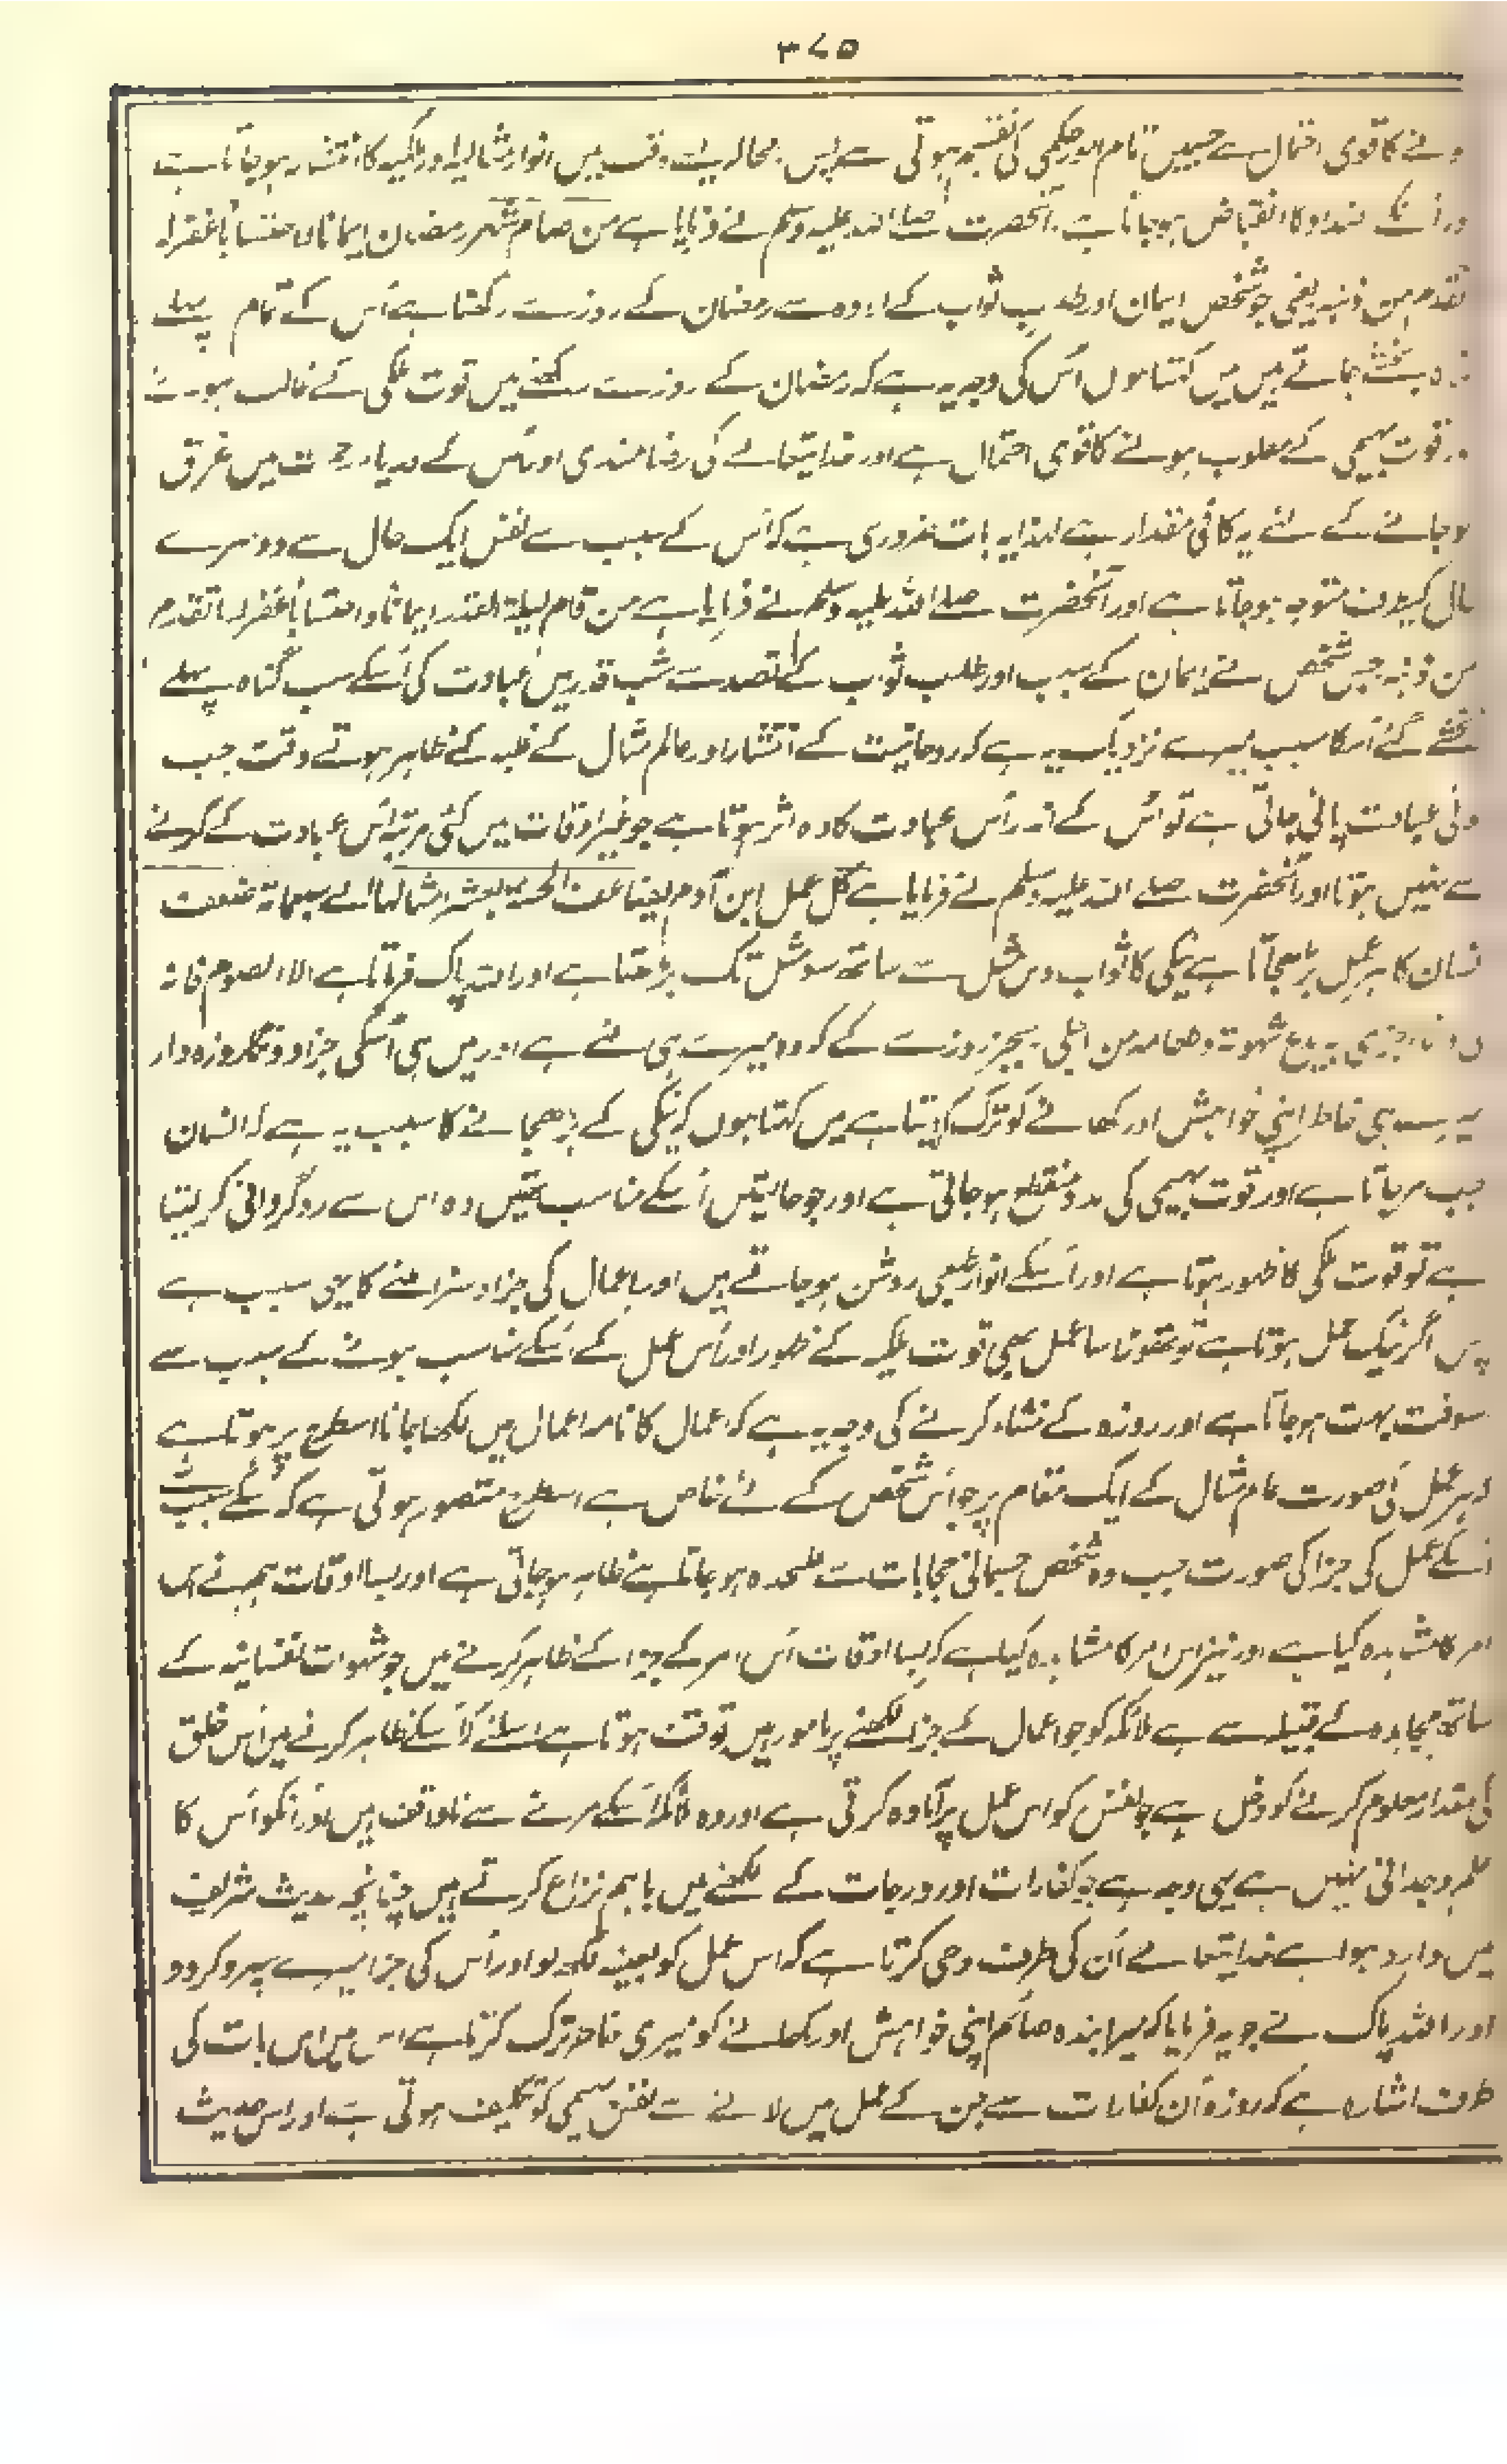 ۳۷۵
ونے کا قوی احتمال ہے جسمیں تمام امور حکمی کی تقسیم ہوتی ہے پس وقت میں انوار مثالیہ اور ملکیہ کا انتشار ہو جاتا ہے
ور انکے انداد کا انقباض ہو جاتا ہے. آنحضرت صلے اللہ علیہ وسلم نے فرمایا ہے من صام شہر رمضان ایمانا واحتسابا غفر لہ
تقدم من ذنبہ یعنی جو شخص ایمان اور طلب ثواب کے ارادہ سے رمضان کے روزے رکھتا ہے اُس کے تمام پہلے
بخشے جاتے ہیں میں کہتا ہوں اُس کی وجہ یہ ہے کہ رمضان کے روزے رکھنے میں قوت ملکی کے غالب ہونے
ور قوت بہیمی کے مغلوب ہونے کا قوی احتمال ہے اور خدا یتعالے کی رضا مندی اور اُس کے دریاے رحمت میں غرق
ہو جانے کے لئے یہ کافی مقدار ہے لہذا یہ بات ضروری ہے کہ اُس کے سبب سے نفس ایک حال سے دوسرے
حال کیطرف متوجہ ہو جاتا ہے اور آنحضرت صلے اللہ علیہ وسلم نے فرمایا ہے من قام لیلۃ القدر ایمانا واحتسابا غفر لہ ما تقدم
من ذنبہ جس شخص نے ایمان کے سبب اور طلب ثواب کے قصد سے شب قدر میں عبادت کی اُسکے سب گناہ پہلے
بخشے گئے اُسکا سبب میرے نزدیک یہ ہے کہ روحانیت کے انتشار اور عالم مثال کے غلبہ کے ظاہر ہوتے وقت جب
وئی عبادت پائی جاتی ہے تو اُس کے اندر اُس عبادت کا وہ اثر ہوتا ہے جو غیر اوقات میں کئی مرتبہ اُس عبادت کے کرنے
سے نہیں ہوتا اور آنحضرت صلے اللہ علیہ وسلم نے فرمایا ہے کل عمل ابن آدم یضاعف الحسنۃ بعشر امثالہا الے سبعمائۃ ضعف
نسان کا ہر عمل بڑھجاتا ہے نیکی کا ثواب دس مثل سے سات سو مثل تک بڑھتا ہے اور اللہ پاک فرماتا ہے الا الصوم فانہ
لی وانا اجزی بہ یدع شہوتہ وطعامہ من اجلی بجز روزے کے کہ وہ میرے ہی لئے ہے اور میں ہی اُسکی جزا دونگا روزہ دار
میرے ہی خاطر اپنی خواہش اور کھانے کو ترک کردیتا ہے میں کہتا ہوں کہ نیکی کے بڑھجانے کا سبب یہ ہے کہ انسان
جب مرجاتا ہے اور قوت بہیمی کی مدد منقطع ہو جاتی ہے اور جو حالتیں اُسکے مناسب تھیں وہ اس سے روگردانی کر لیتا
ہے تو قوت ملکی کا ظہور ہوتا ہے اور اُسکے انوار طبعی روشن ہو جاتے ہیں اور اعمال کی جزا و سزا ملنے کا یہی سبب ہے
پس اگر نیک عمل ہوتا ہے تو تھوڑا سا عمل بھی قوت ملکیہ کے ظہور اور اُس عمل کے اُسکے مناسب ہونے کے سبب سے
سوقت بہت ہو جاتا ہے اور روزہ کے مستثناء کرنے کی وجہ یہ ہے کہ اعمال کا نامہ اعمال میں لکھا جانا اسطرح پر ہوتا ہے
کہ ہر عمل کی صورت عالم مثال کے ایک مقام پر جو اُس شخص کے لئے خاص ہے اسطرح متصور ہوتی ہے کہ اُسکے سبب سے
اُسکے عمل کی جزا کی صورت جب وہ شخص جسمانی حجابات سے علیحدہ ہو جاتا ہے ظاہر ہو جاتی ہے اور بسا اوقات ہمنے اس
امر کا مشاہدہ کیا ہے اور نیز اس امر کا مشاہدہ کیا ہے کہ بسا اوقات اُس امر کے جزا کے ظاہر کرنے میں جو شہوات نفسانیہ کے
ساتھ مجاہدہ کے قبیلہ سے ہے ملائکہ کو جو اعمال کے جزا لکھنے پر مامور ہیں توقف ہوتا ہے اسلئے کہ اُسکے ظاہر کرنے میں اُس خلق
کی مقدار معلوم کرنے کو دخل ہے جو نفس کو اس عمل پر آمادہ کرتی ہے اور وہ ملائکہ اُسکے مزے سے ناواقف ہیں اور اُنکو اُس کا
علم وجدانی نہیں ہے یہی وجہ ہے جو کفارات اور درجات کے لکھنے میں باہم نزاع کرتے ہیں چنانچہ حدیث شریف
میں وارد ہوا ہے خدا یتعالے اُن کی طرف وحی کرتا ہے کہ اس عمل کو بعینہ لکھ لو اور اُس کی جزا میرے سپرد کر دو
اور اللہ پاک نے جو یہ فرمایا کہ میرا بندہ صائم اپنی خواہش اور کھانے کو میری خاطر ترک کرتا ہے اس میں اس بات کی
طرف اشارہ ہے کہ روزہ اُن کفارات سے ہے جن کے عمل میں لانے سے نفس بہیمی کو تکلیف ہوتی ہے اور اس حدیث